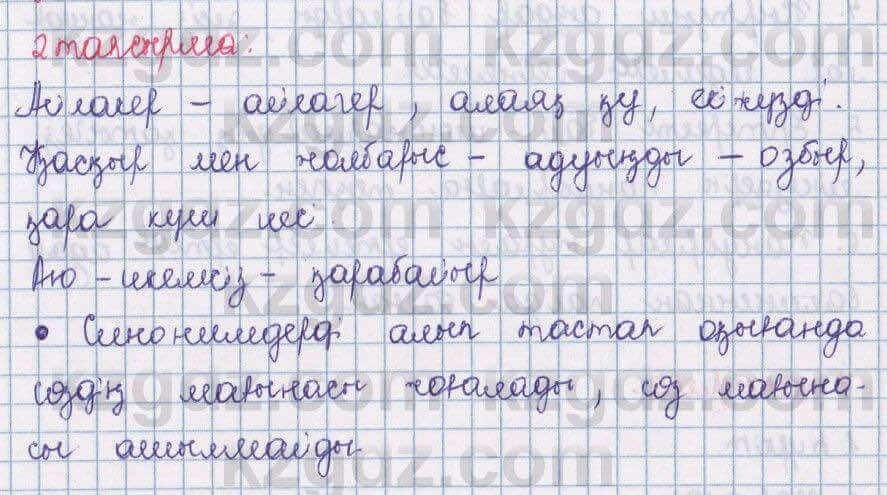 2 тапсырма:
Айлакер – айлагер, алаяқ қу, екіжүзді.
Қасқыр мен жолбарыс – адуынды – озбыр,
қара күш иесі.
Аю – икемсіз – қарабайыр
• Синонимдерді алып тастап оқығанда
сөздің мағынасы жоғалады, сөз мағына-
сы ашылмайды
kzgdz.com